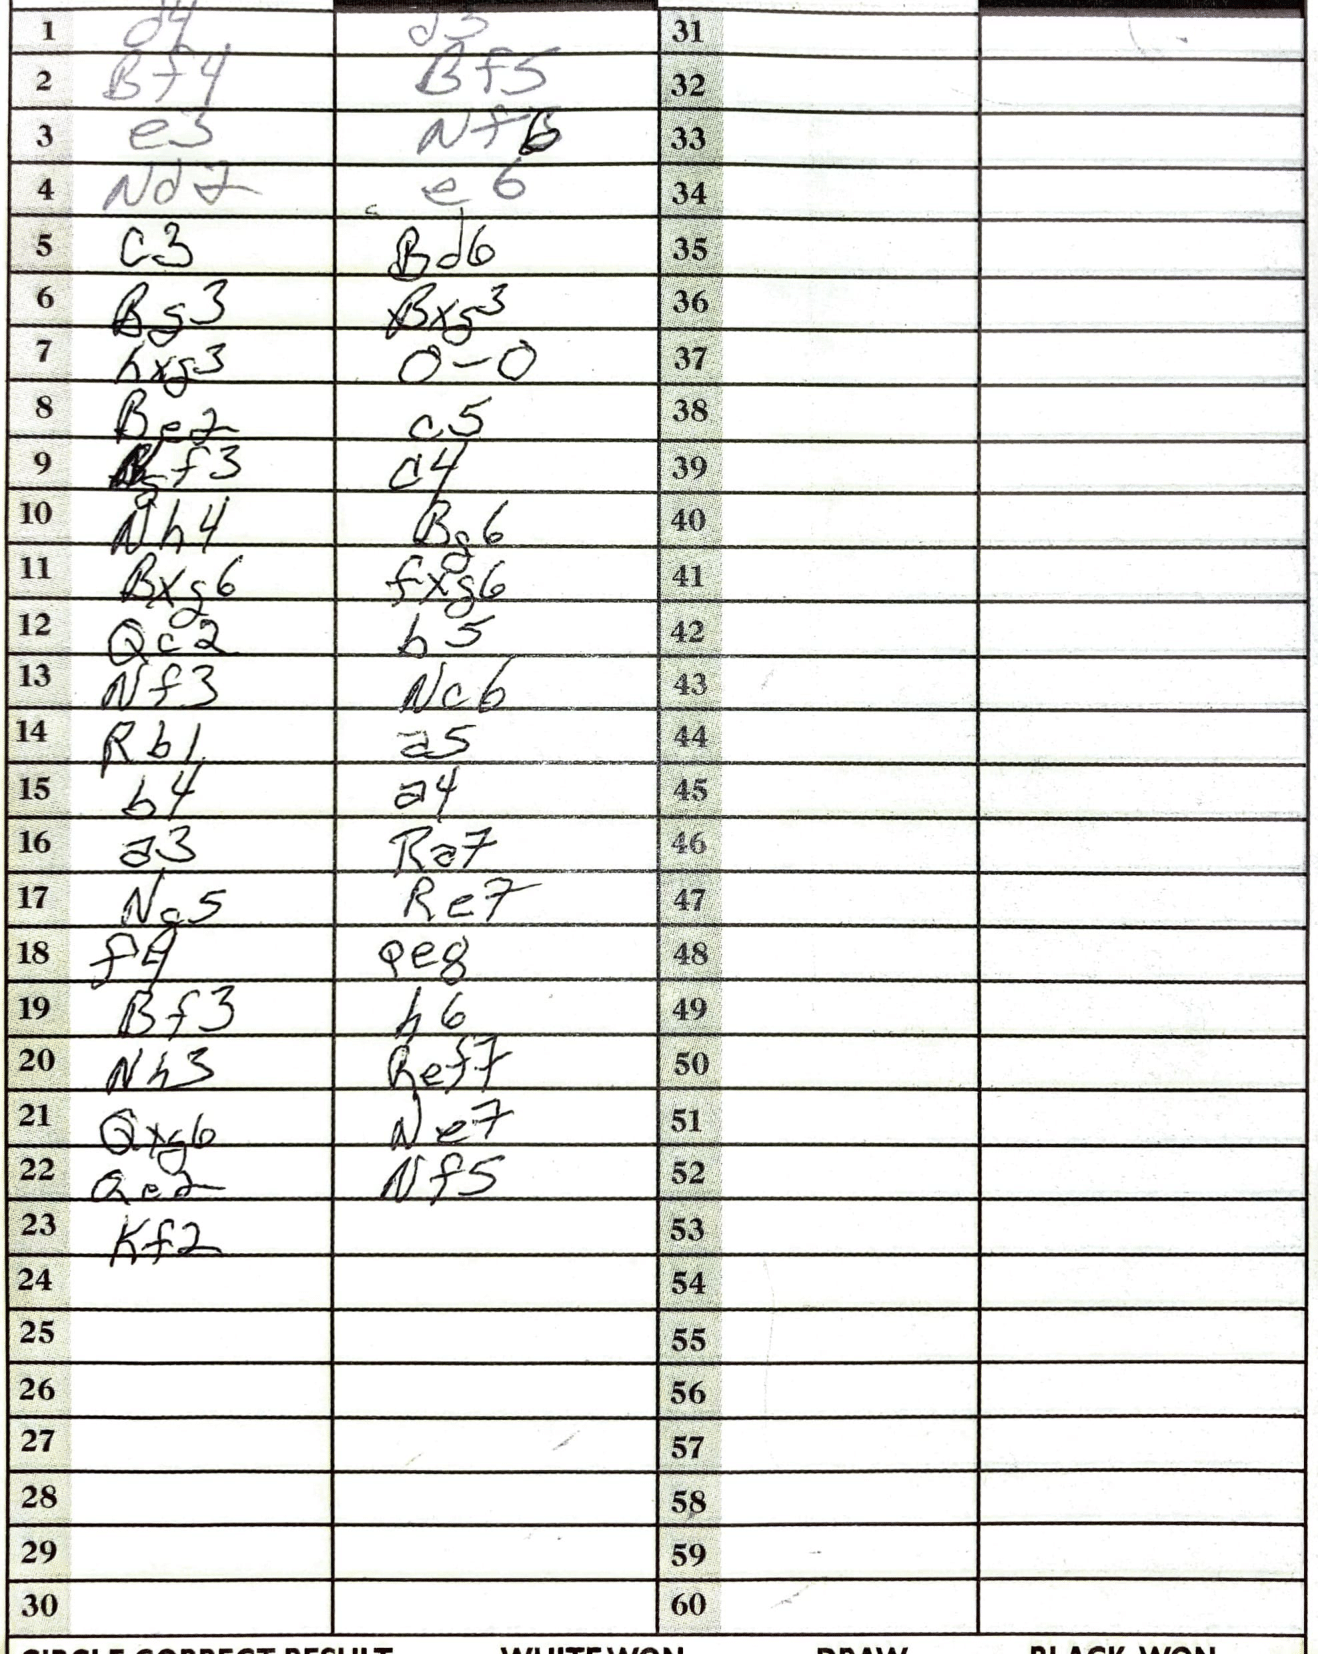 1 d4 d5 31
2 Bf4 Bf5 32
3 e3 Nf6 33
4 Nd2 e6 34
5 c3 Bd6 35
6 Bg3 Bxg3 36
7 hxg3 0-0 37
8 Be2 c5 38
9 f3 c4 39
10 Nh4 Bg6 40
11 Bxg6 fxg6 41
12 Qc2 b5 42
13 Nf3 Nc6 43
14 Rb1 a5 44
15 b4 a4 45
16 a3 Ra7 46
17 Ng5 Re7 47
18 f4 Qe8 48
19 Bf3 h6 49
20 Nh3 Ref7 50
21 Qxg6 Ne7 51
22 Qc2 Nf5 52
23 Kf2 53
24 54
25 55
26 56
27 57
28 58
29 59
30 60
CIRCLE CORRECT RESULT WHITE WON DRAW BLACK WON